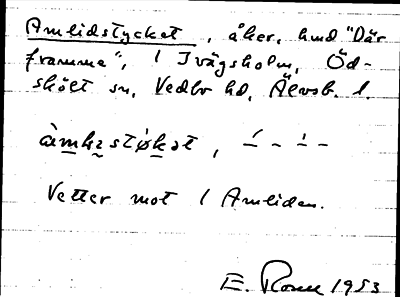 Amlidstycket, åker, hmd "Där
framme", 1 Ivägsholm, Öd-
skölt sn, Vedbo hd, Älvsb. l.
Vetter mot 1 Amliden.
E. Rosen 1953